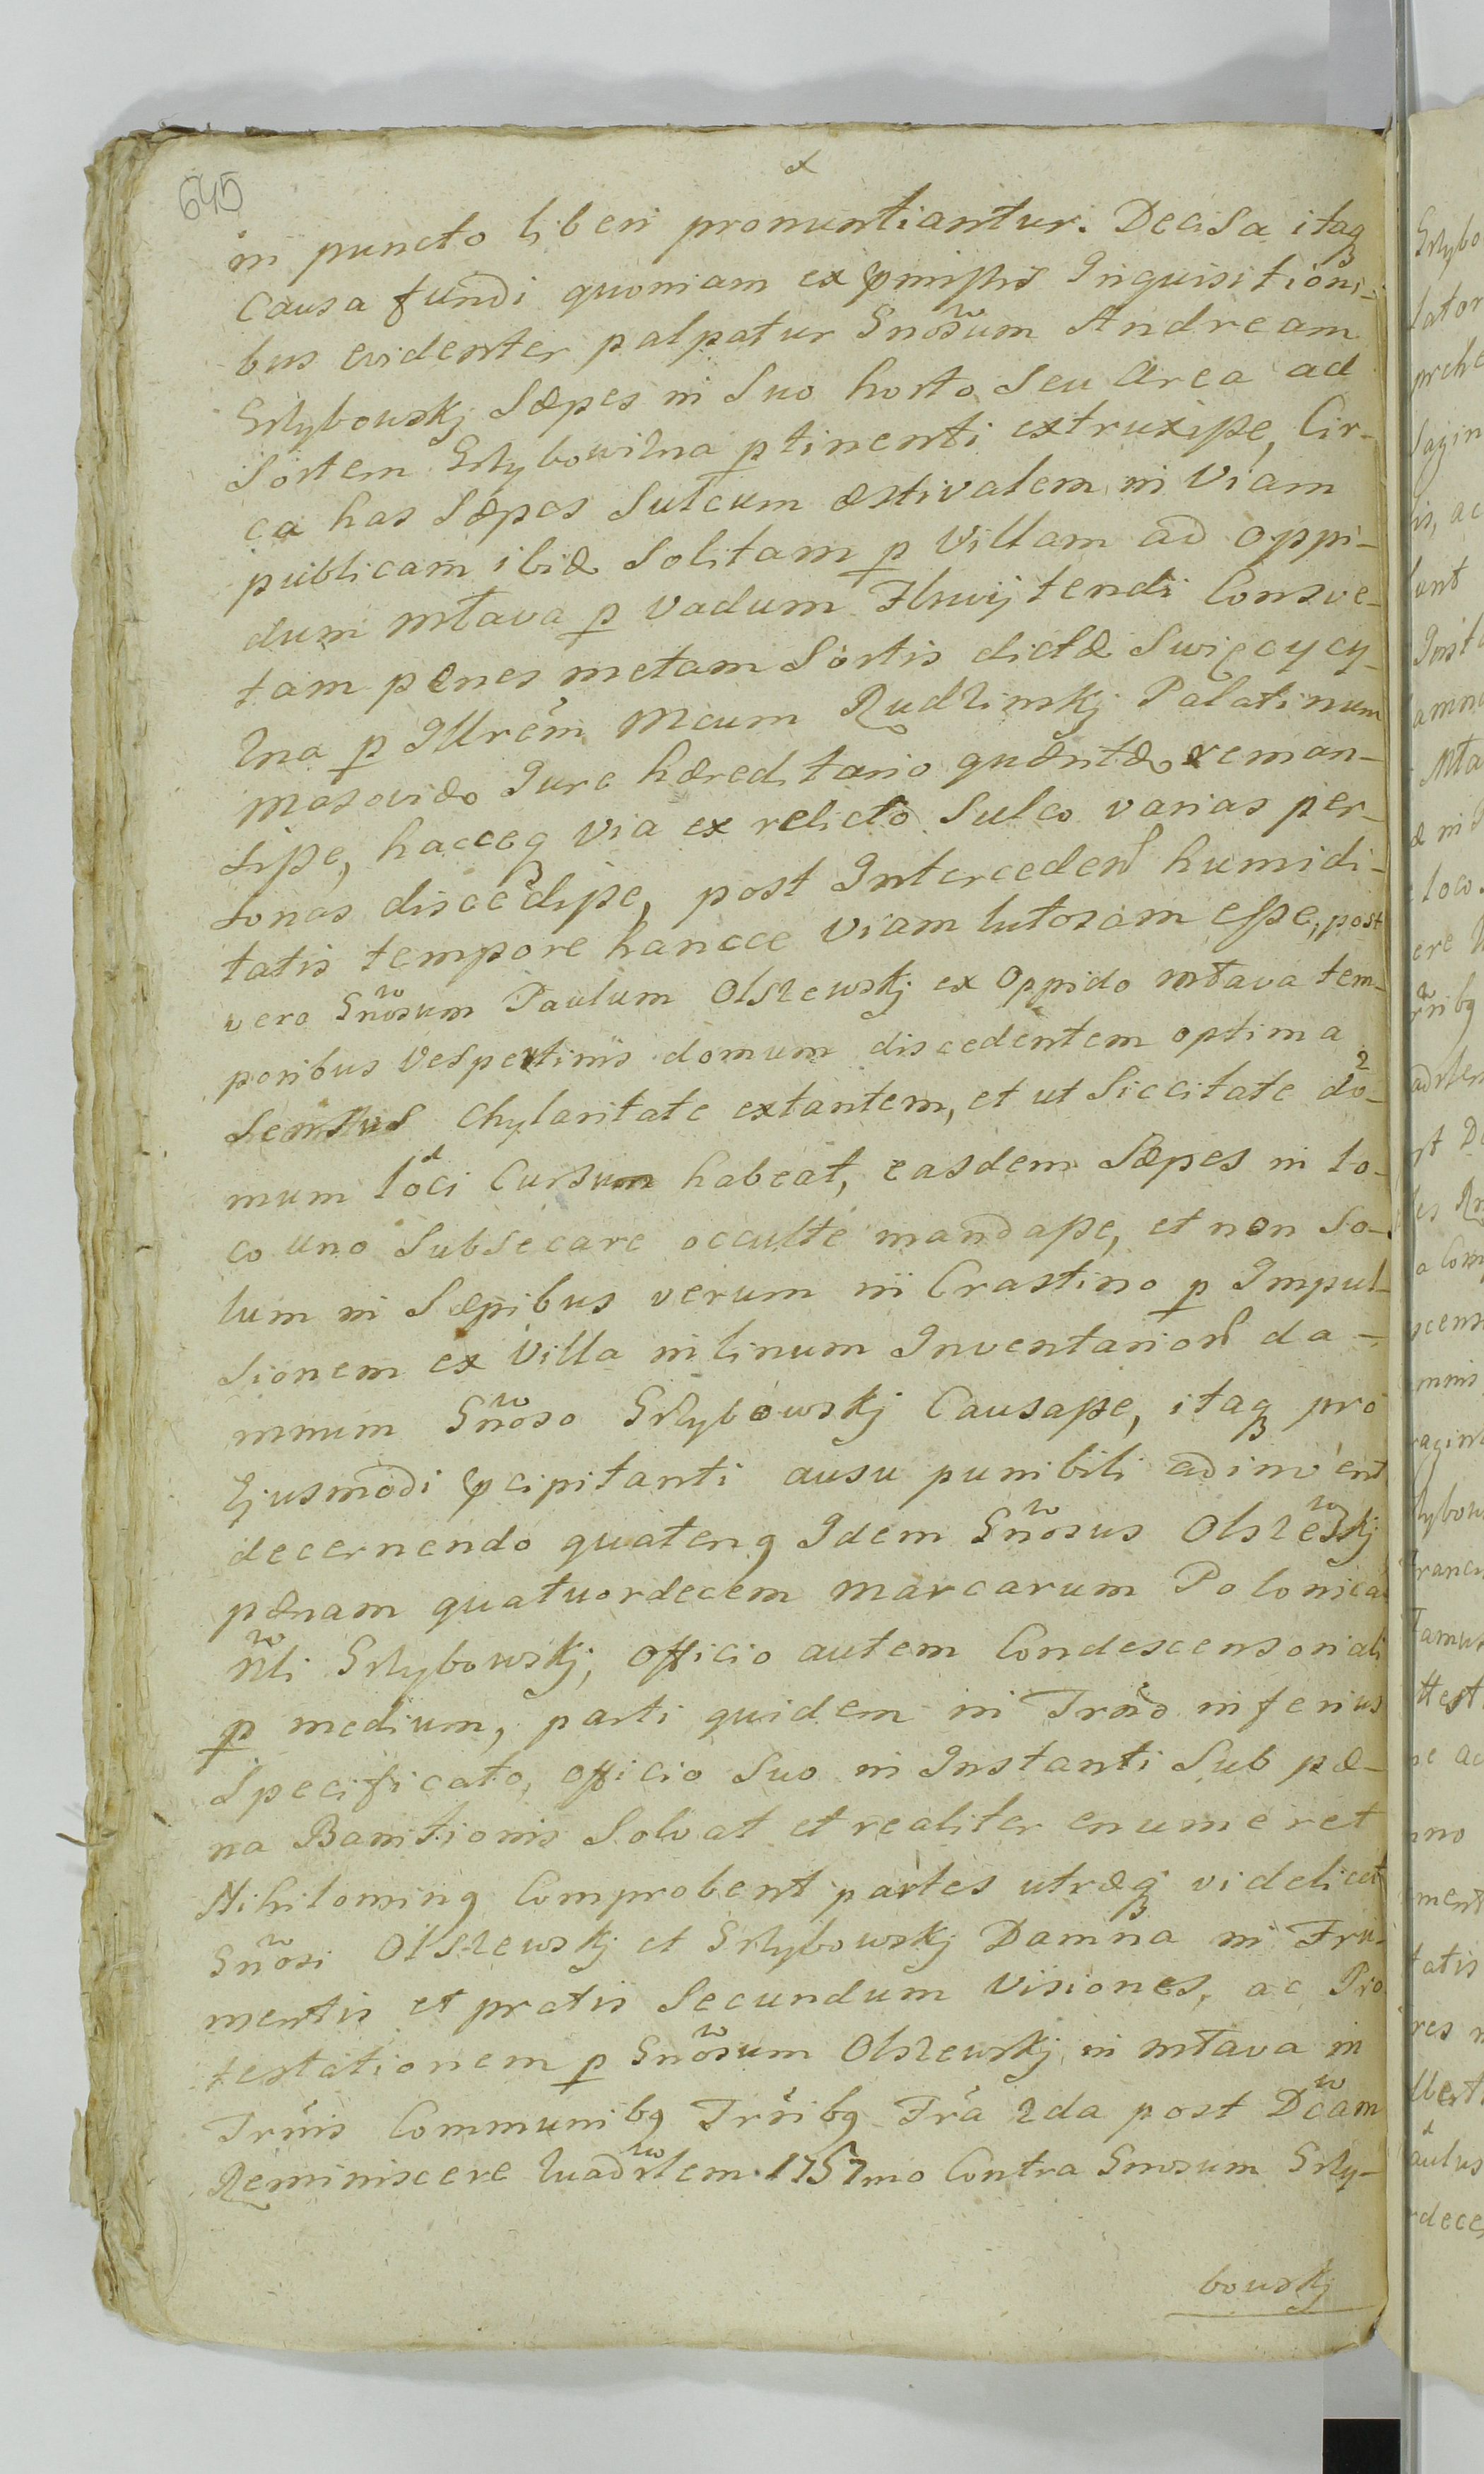 645
in puncto liberi pronuntiantur. Decisa itaq
Causa fundi quoniam ex pmissis Inquisitioni-
bus evidenter palpatur Gnosum Andream
Grzybowskj Sæpes in Suo horto Seu Area ad
Sortem Grzybowizna ptinenti extruxisse, Cir-
ca has Sæpes Sulcum æstivalem in Viam
publicam ibidæ Solitam p Villam ad Oppi-
dum Mtava p vadum Fluvij tendi Consve-
tam penes metam Sortis dictæ Swięcycy-
zna p Illrem Mcum Rudzinskj Palatinum
Masoviæ Jure hæreditario quæsitæ reman-
sisse, hacceq Via ex relicto Sulco varias per-
sonas discedisse, post Interceden humidi-
tatis tempore hancce Viam lutosam esse, post
vero Gnosum Paulum Olszewskj ex Oppido Mtava tem-
poribus Vespertinis domum discedentem optima
Sensus Chylaritate extantem, et ut Siccitate do-
mum loci Cursum habeat, easdem Sæpes in lo-
co uno Subsecare occulte mandasse, et non So-
lum in Sæpibus verum in Crastino p Impul-
sionem ex Villa in linum Inventarior da-
mnum Gnoso Grzybowskj Causasse, itaq pro
Ejusmodi pcipitanti ausu punibili adinvent
decernendo quatenq Idem Gnosus Olszewskj
pænam quatuordecem Marcarum Polonica
Nli Grzybowskj, Officio autem Condescensoriali
p medium, parti quidem in Trno inferius
Specificato, officio Suo in Instanti Sub pæ-
na Banitionis Solvat et realiter enumeret
Nihilominq Comprobent partes utræq videlicet
Gnosi Olszewskj et Grzybowskj Damna in Fru-
mentis et pratis Secundum Visiones, ac Pro
testationem p Gnosum Olszewskj in Mtava in
Trnis Communibq Trribq Fra 2da post Dcam
Reminiscere Quadrlem 1757mo Contra Gnosum Grzy-
bowskj